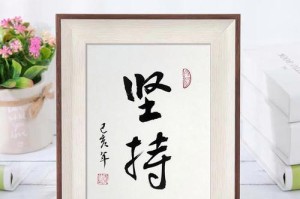 坚持
己亥年